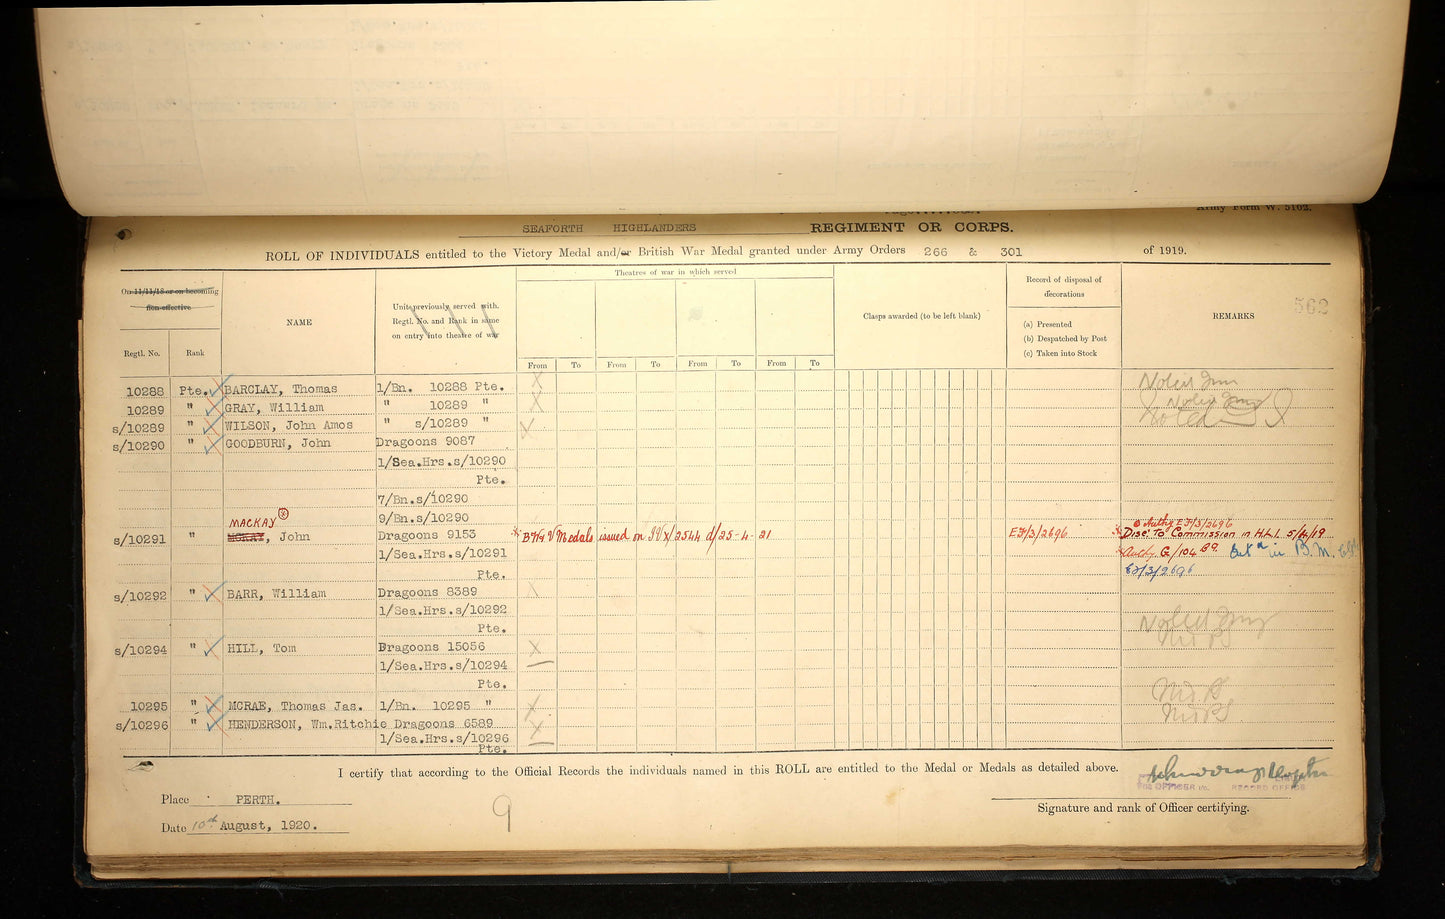 Army Form W. 5162.
SEAFORTH HIGHLANDERS REGIMENT OR CORPS.
ROLL OF INDIVIDUALS entitled to the Victory Medal and/or British War Medal granted under Army Orders 266 & 301 of 1919.
Theatres of war in which served
On 11/11/18 or on becoming
non-effective
Regtl. No.
Rank
NAME
Units previously served with.
Regtl. No. and Rank in same
on entry into theatre of war
From To From To From To From To
Clasps awarded (to be left blank)
Record of disposal of
decorations
(a) Presented
(b) Despatched by Post
(c) Taken into Stock
REMARKS
562
10288 Pte. BARCLAY, Thomas 1/Bn. 10288 Pte. X
10289 " GRAY, William " 10289 " X
s/10289 " WILSON, John Amos " s/10289 " X Noted
s/10290 " GOODBURN, John Dragoons 9087
1/Sea.Hrs.s/10290
Pte.
7/Bn.s/10290
9/Bn.s/10290
MACKAY
s/10291 " MCKAY, John Dragoons 9153 B W & V Medals issued on IVX/2544 d/25-4-21 EF/3/2696
Authy EF/3/2696
Disc. To Commission in H.L.I. 5/4/19
1/Sea.Hrs.s/10291
Authy. G/104 in B.M.
Pte. EF/3/2696
s/10292 " BARR, William Dragoons 8389 X
1/Sea.Hrs.s/10292
Pte.
s/10294 " HILL, Tom Dragoons 15056 X
1/Sea.Hrs.s/10294
Pte.
10295 " MCRAE, Thomas Jas. 1/Bn. 10295 " X
s/10296 " HENDERSON, Wm.Ritchie Dragoons 6589 X
1/Sea.Hrs.s/10296
Pte.
I certify that according to the Official Records the individuals named in this ROLL are entitled to the Medal or Medals as detailed above.
OFFICER i/c. RECORD OFFICE
Place PERTH.
Date 10th August, 1920.
9
Signature and rank of Officer certifying.